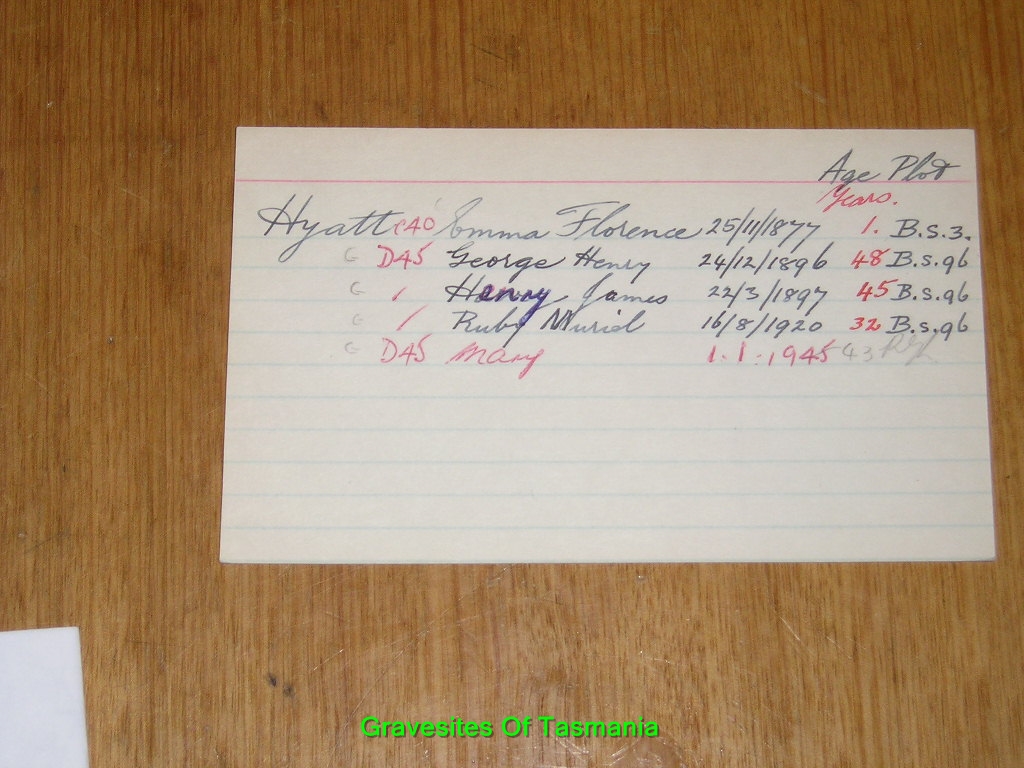 Age Plot
Years.
Hyatt C40 Emma Florence 25/11/1877 1. B.S.3.
G D45 George Henry 24/12/1896 48 B.S.96
G / Henry James 22/3/1897 45 B.S.96
G / Ruby Muriel 16/8/1920 32 B.S.96
G D45 Mary 1.1.1945 43
Gravesites Of Tasmania